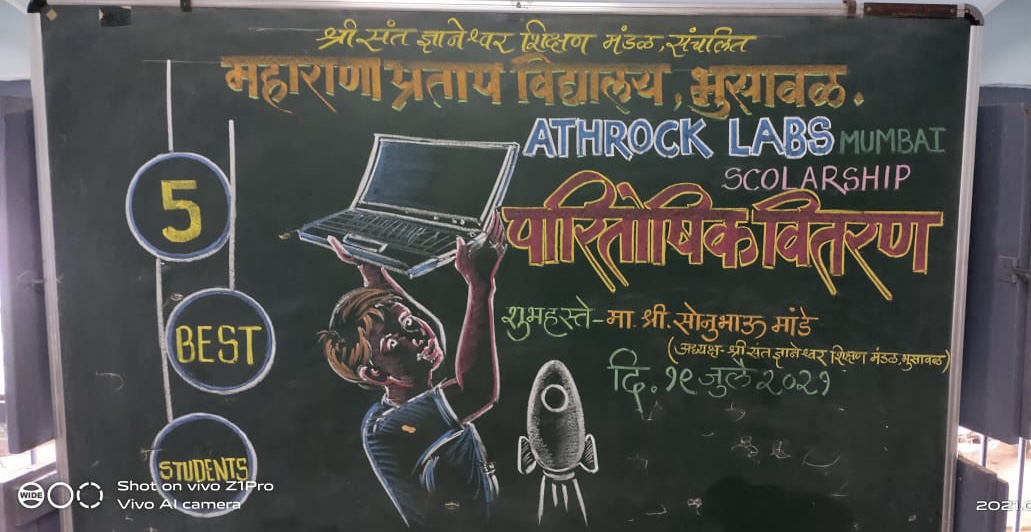 श्री संत ज्ञानेश्वर शिक्षण मंडळ, संचलित
महाराणा प्रताप विद्यालय, भुसावळ.
ATHROCK LABS MUMBAI
SCOLARSHIP
पारितोषिक वितरण
शुभहस्ते - मा. श्री. सोनुभाऊ मांडे
(अध्यक्ष - श्री संत ज्ञानेश्वर शिक्षण मंडळ, भुसावळ)
दि. १९ जुलै २०२१
5
BEST
STUDENTS
WIDE
Shot on vivo Z1Pro
Vivo AI camera
2021.